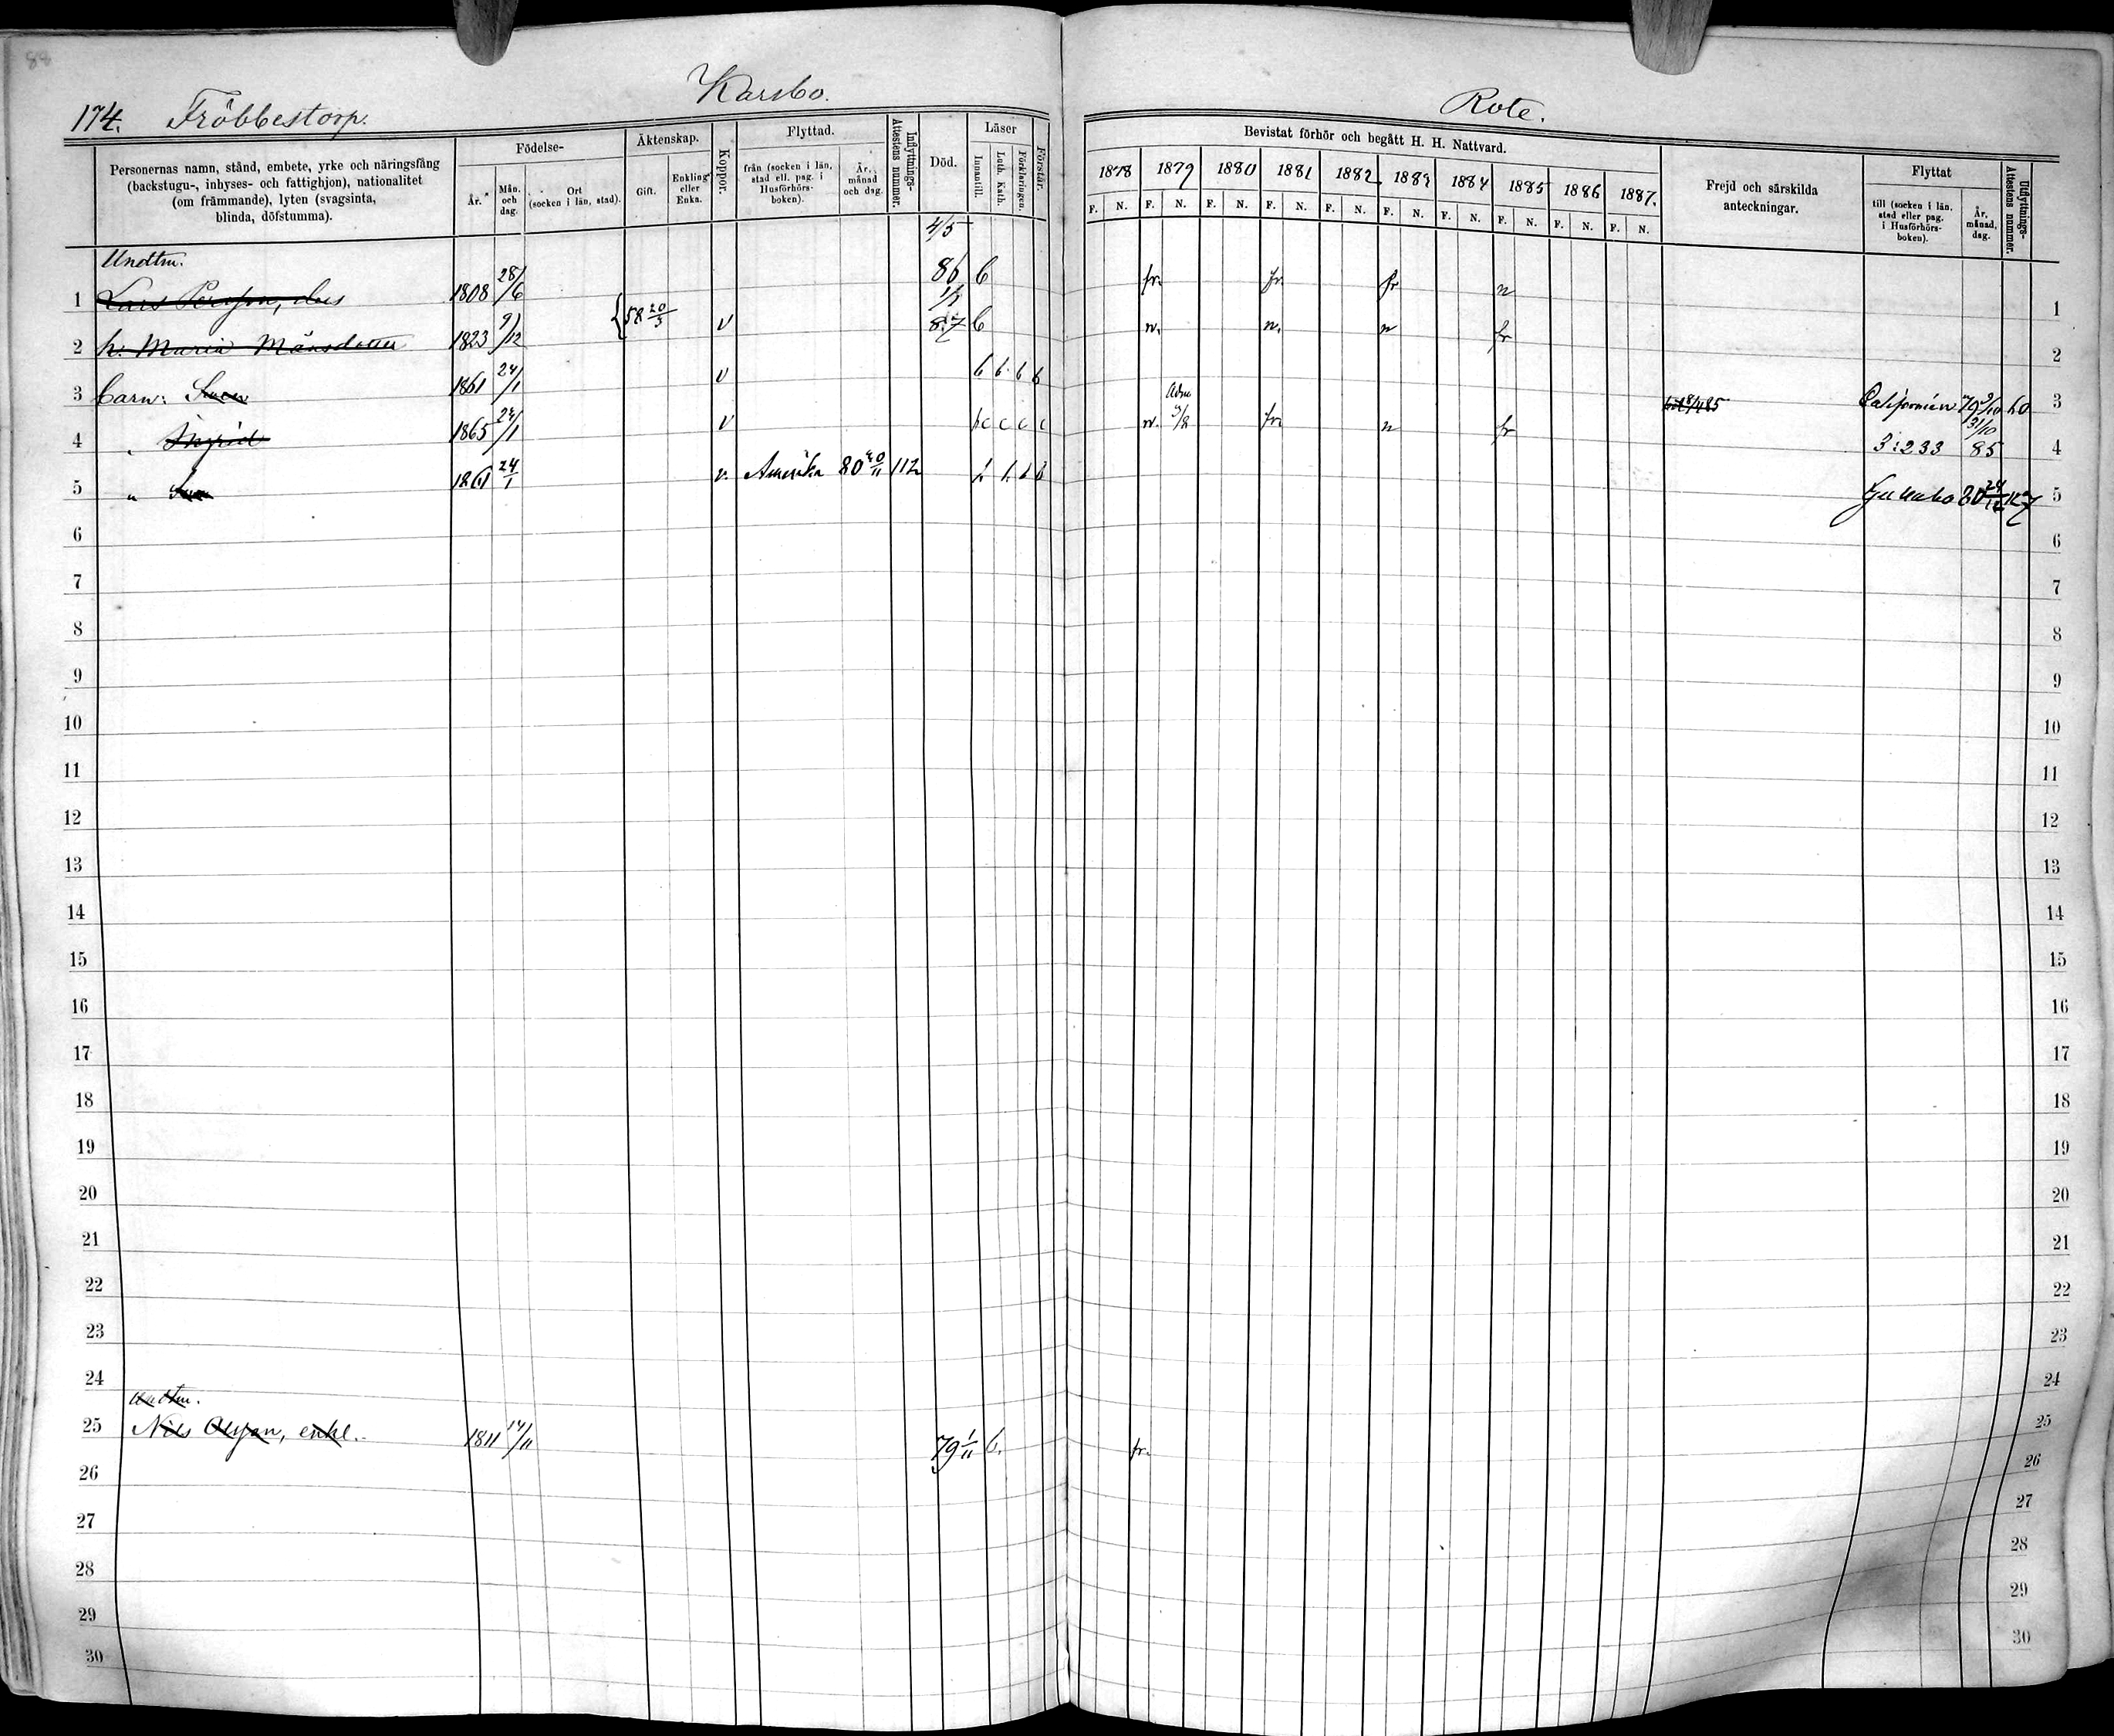 88
174. Fröbbestorp. Karsbo. Rote.
Personernas namn, stånd, embete, yrke och näringsfång
(backstugu-, inhyses- och fattighjon), nationalitet
(om främmande), lyten (svagsinta,
blinda, döfstumma).
Födelse-
År. Mån. och dag. Ort (socken i län, stad).
Äktenskap.
Gift. Enkling eller Enka.
Koppor.
Flyttad.
från (socken i län, stad ell. pag. i Husförhörs-boken). År, månad och dag.
Inflyttnings-Attestens nummer.
Död.
Läser
Innantill. Luth. Kath. Förklaringen.
Förstår.
Bevistat förhör och begått H. H. Nattvard.
1878 1879 1880 1881 1882 1883 1884 1885 1886 1887.
F. N. F. N. F. N. F. N. F. N. F. N. F. N. F. N. F. N. F. N.
Frejd och särskilda anteckningar.
Flyttat
till (socken i län, stad eller pag. i Husförhörs-boken). År, månad, dag.
Utflyttnings-Attestens nummer.
4/5
Undtm.
1 Lars 1808 28/6 86 b fr. fr. fr n 1
2 h. Maria Månsdotter 1823 9/12 58 20/3 v 87 b n. n. n fr 2
3 barn: Sven 1861 24/1 v b b b b Californien 79 60 3
4 " Ingrid 1865 24/1 v c c c n. fr. n fr 3:233 31/10 85 4
5 " Sven 1861 24/1 v. Amerika 80 112 80 24/12 127 5
6 6
7 7
8 8
9 9
10 10
11 11
12 12
13 13
14 14
15 15
16 16
17 17
18 18
19 19
20 20
21 21
22 22
23 23
24 24
Undtm.
25 Nils Olsson, enkl. 1811 14/11 79 1/11 b. fr. 25
26 26
27 27
28 28
29 29
30 30